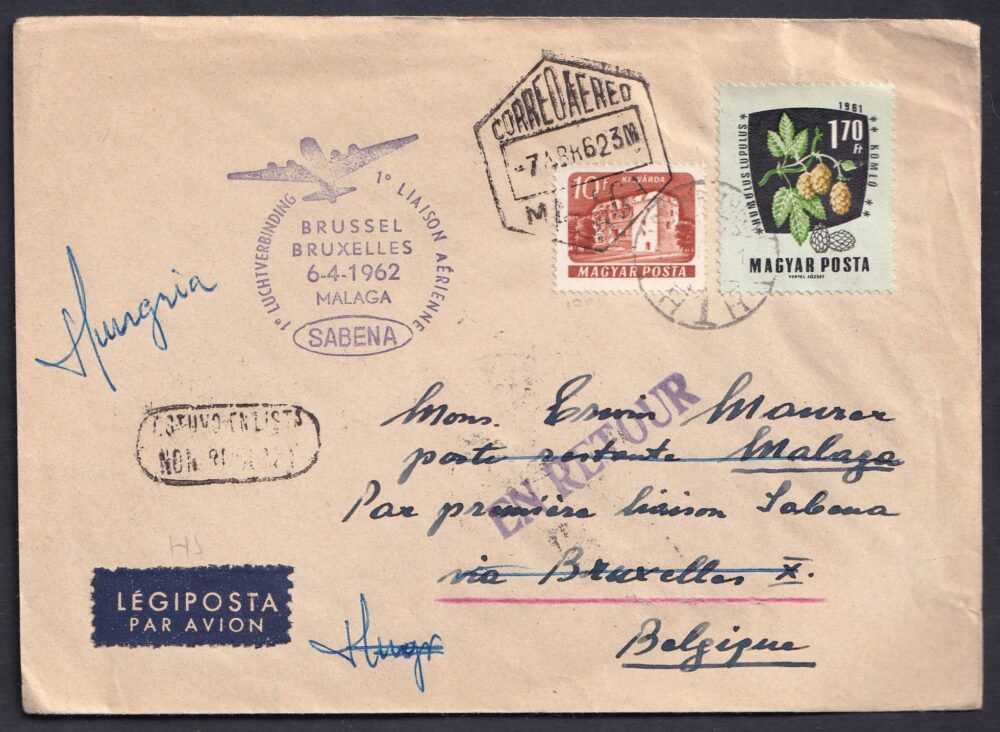 CORREO AEREO
-7 ABR 62 3M
1961
1,70
Ft
HUMULUS LUPULUS
KOMLÓ
MAGYAR POSTA
VERTEL JÓZSEF
10 f
KISVÁRDA
MAGYAR POSTA
1º LUCHTVERBINDING
1º LIAISON AÉRIENNE
BRUSSEL
BRUXELLES
6-4-1962
MALAGA
SABENA
Hungria
ESTUVO EN LISTA
NON
EN RETOUR
Mons. Erwin Maurer
poste restante Malaga
Par première liaison Sabena
via Bruxelles X.
Belgique
HS
LÉGIPOSTA
PAR AVION